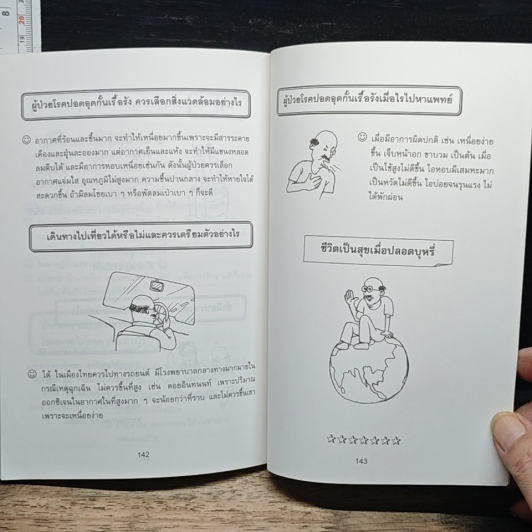 ผู้ป่วยโรคปอดอุดกั้นเรื้อรัง ควรเลือกสิ่งแวดล้อมอย่างไร
อากาศที่ร้อนและชื้นมาก จะทำให้เหนื่อยมากขึ้นเพราะจะมีสารระคาย
เคืองและฝุ่นละอองมาก แต่อากาศเย็นและแห้ง จะทำให้มีแขนงหลอด
ลมตีบได้ และมีอาการหอบเหนื่อยเช่นกัน ดังนั้นผู้ป่วยควรเลือก
อากาศแจ่มใส อุณหภูมิไม่สูงมาก ความชื้นปานกลาง จะทำให้หายใจได้
สะดวกขึ้น ถ้ามีลมโชยเบา ๆ หรือพัดลมเป่าเบา ๆ ก็จะดี
เดินทางไปเที่ยวได้หรือไม่และควรเตรียมตัวอย่างไร
ได้ ในเมืองไทยควรไปทางรถยนต์ มีโรงพยาบาลกลางทางมากมายใน
กรณีเหตุฉุกเฉิน ไม่ควรขึ้นที่สูง เช่น ดอยอินทนนท์ เพราะปริมาณ
ออกซิเจนในอากาศในที่สูงมาก ๆ จะน้อยกว่าที่ราบ และไม่ควรขึ้นเขา
เพราะจะเหนื่อยง่าย
142
ผู้ป่วยโรคปอดอุดกั้นเรื้อรังเมื่อไรไปหาแพทย์
เมื่อมีอาการผิดปกติ เช่น เหนื่อยง่าย
ขึ้น เจ็บหน้าอก ขาบวม เป็นต้น เมื่อ
เป็นไข้สูงไม่ดีขึ้น ไอหอบมีเสมหะมาก
เป็นหวัดไม่ดีขึ้น ไอบ่อยจนรุนแรง ไม่
ได้พักผ่อน
ชีวิตเป็นสุขเมื่อปลอดบุหรี่
143
8
20
19